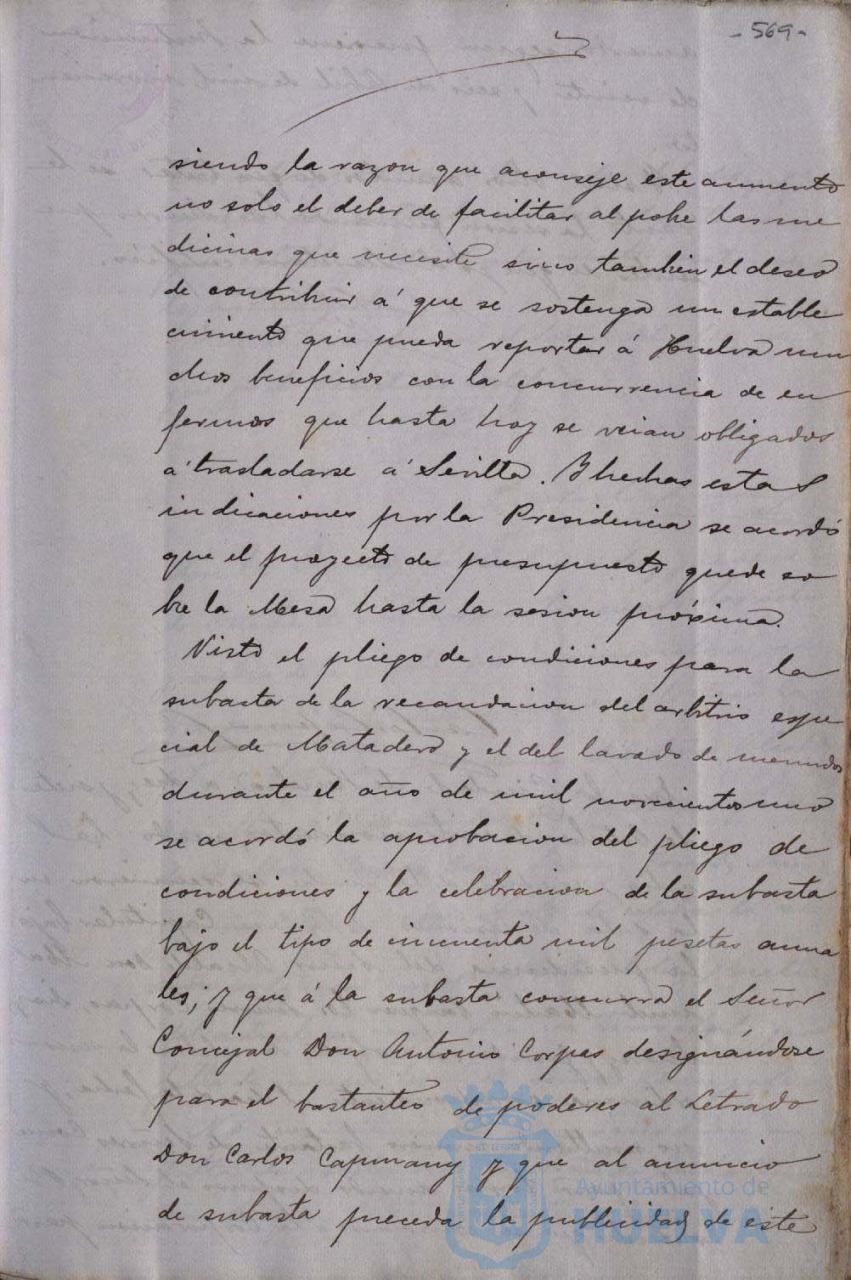 - 569 -
siendo la razon que aconseje este aumento
no solo el deber de facilitar al pobre las me
dicinas que necesite sino tambien el deseo
de contribuir á que se sostenga un estable
cimiento que pueda reportar á Huelva mu
chos beneficios con la concurrencia de en
fermos que hasta hoy se veian obligados
á trasladarse á Sevilla. Y hechas estas
indicaciones por la Presidencia se acordó
que el proyecto de presupuesto quede so
bre la Mesa hasta la sesion próxima.
Visto el pliego de condiciones para la
subasta de la recaudacion del arbitrio espe
cial de Matadero y el del lavado de menudos
durante el año de mil novecientos uno
se acordó la aprobacion del pliego de
condiciones y la celebracion de la subasta
bajo el tipo de cincuenta mil pesetas anua
les; y que á la subasta concurra el Señor
Concejal Don Antonio Corpas designándose
para el bastanteo de poderes al Letrado
Don Carlos Capmany y que al anuncio
de subasta preceda la publicidad de este
Ayuntamiento de
HUELVA